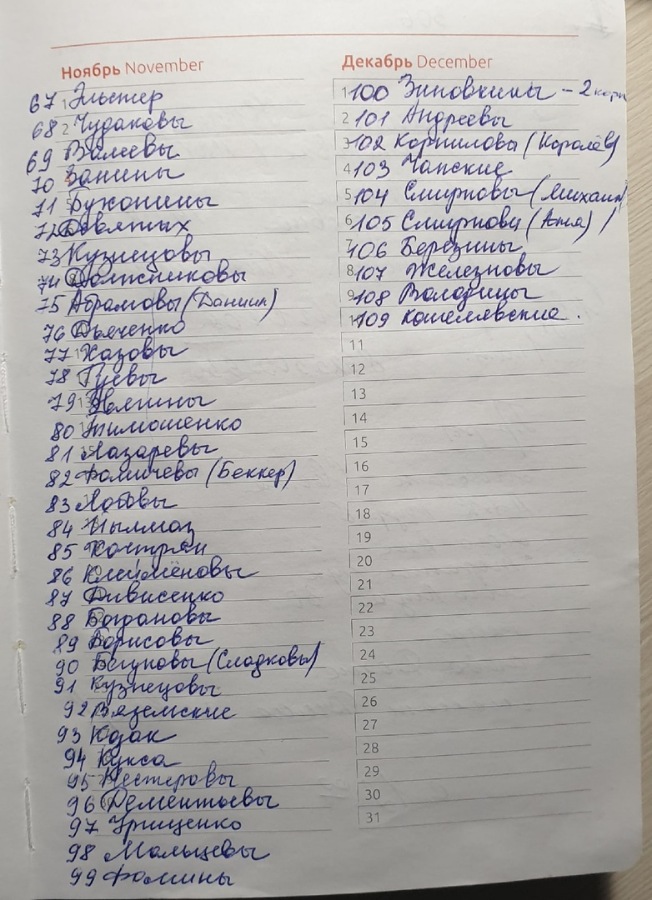 Ноябрь November
67 Эльстер
68 Чудаковы
69 Валеевы
70 Занины
71 Буконины
72 Девятых
73 Кузнецовы
74 Должниковы
75 Абрамовы (Даниил)
76 Дьяченко
77 Хазовы
78 Гуевы
79
80 Тимошенко
81 Лазаревы
82 Фомичевы (Беккер)
83 Лобовы
84
85
86 Клеймёновы
87 Дивисенко
88 Баграновы
89 Борисовы
90 Бегуновы (Сладковы)
91 Кузнецовы
92 Вяземские
93
94 Кукса
95 Нестеровы
96 Дементьевы
97 Грищенко
98 Мальцевы
99 Фомины
Декабрь December
1 100 Зиновкины - 2 корп
2 101 Андреевы
3 102 Корниловы (Королёв)
4 103 Чапские
5 104 Смирновы (Михаил)
6 105 Смирновы (Аня) /
7 106 Березины
8 107 Железновы
9 108
109 Кошелявские.
11
12
13
14
15
16
17
18
19
20
21
22
23
24
25
26
27
28
29
30
31